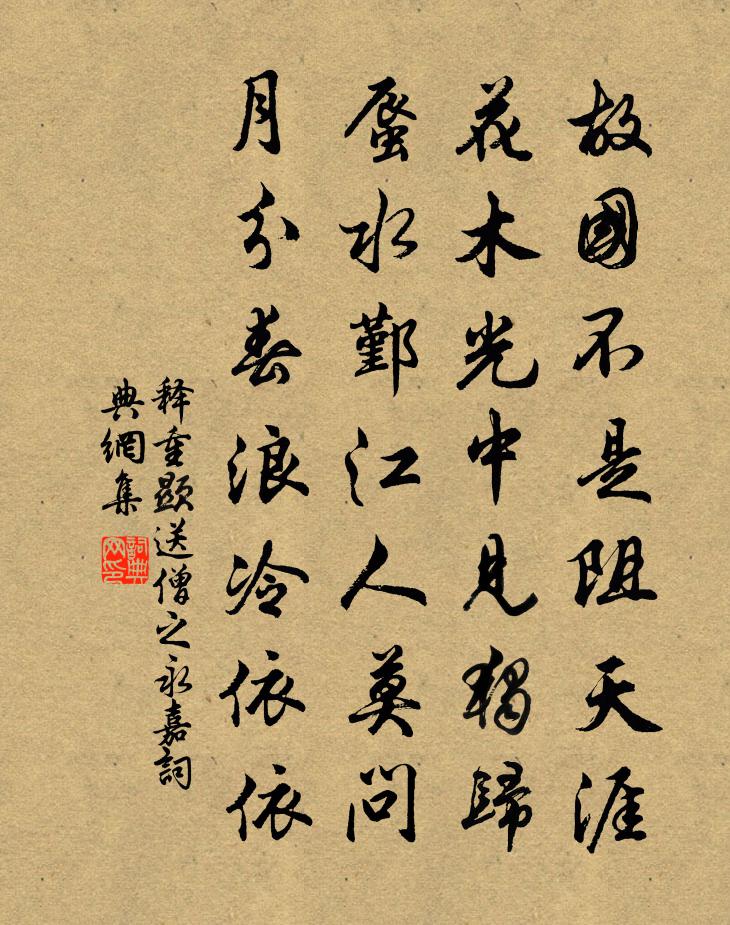 故國不是阻天涯
花木光中見獨歸
蜃水鄞江人莫問
月分春浪冷依依
释重顯送僧之永嘉詞
典網集
詞典网印